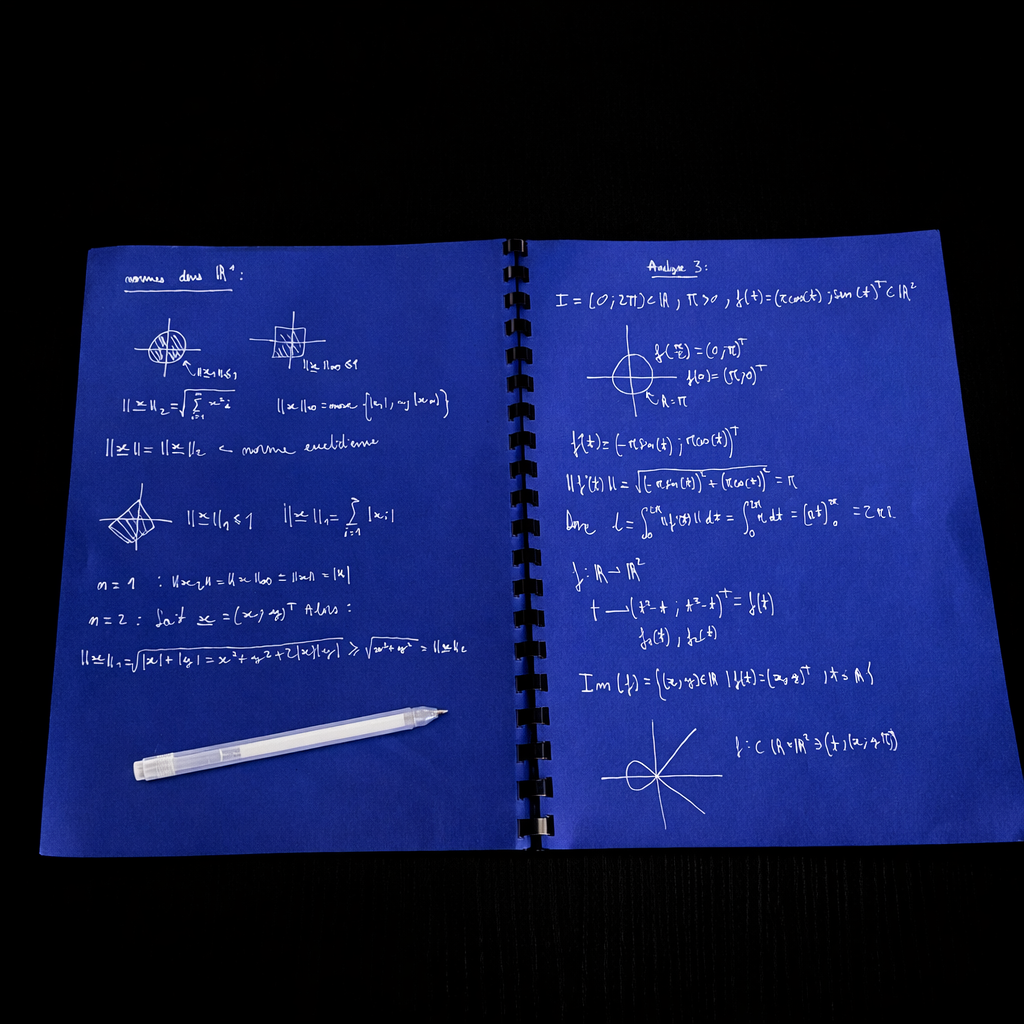 normes dans ℝⁿ:
||x||∞ ≤ 1
||x||₂ = √(∑ᵢ₌₁ⁿ x²ᵢ)
||x||∞ = max {|x₁|, |xₙ|}
||x|| = ||x||₂ ← norme euclidienne
||x||₁ ≤ 1
||x||₁ = ∑ᵢ₌₁ⁿ |xᵢ|
n = 1 : ||x₂|| = ||x||∞ = ||x|| = |x|
n = 2 : Soit x = (x; y)ᵀ Alors :
||x||₁ = √(|x| + |y| = x² + y² + 2|x||y|) ≥ √(x² + y²) = ||x||₂
Analyse 3:
I = (0; 2π) ⊂ ℝ, π > 0, f(t) = (π cos(t); sin(t))ᵀ ⊂ ℝ²
f(π/2) = (0, π)ᵀ
f(0) = (π; 0)ᵀ
R = π
f'(t) = (-π sin(t); π cos(t))ᵀ
||f'(t)|| = √((-π sin(t))² + (π cos(t))²) = π
Donc l = ∫₀²π ||f'(t)|| dt = ∫₀²π π dt = (πt)²π₀
f: ℝ → ℝ²
t → (t² - t; t³ - t)ᵀ = f(t)
f₁(t), f₂(t)
Im(f) = {(x, y) ∈ ℝ | f(t) = (x, y)ᵀ
f: ⊂ ℝ × ℝ² ∋ (t, (x; y